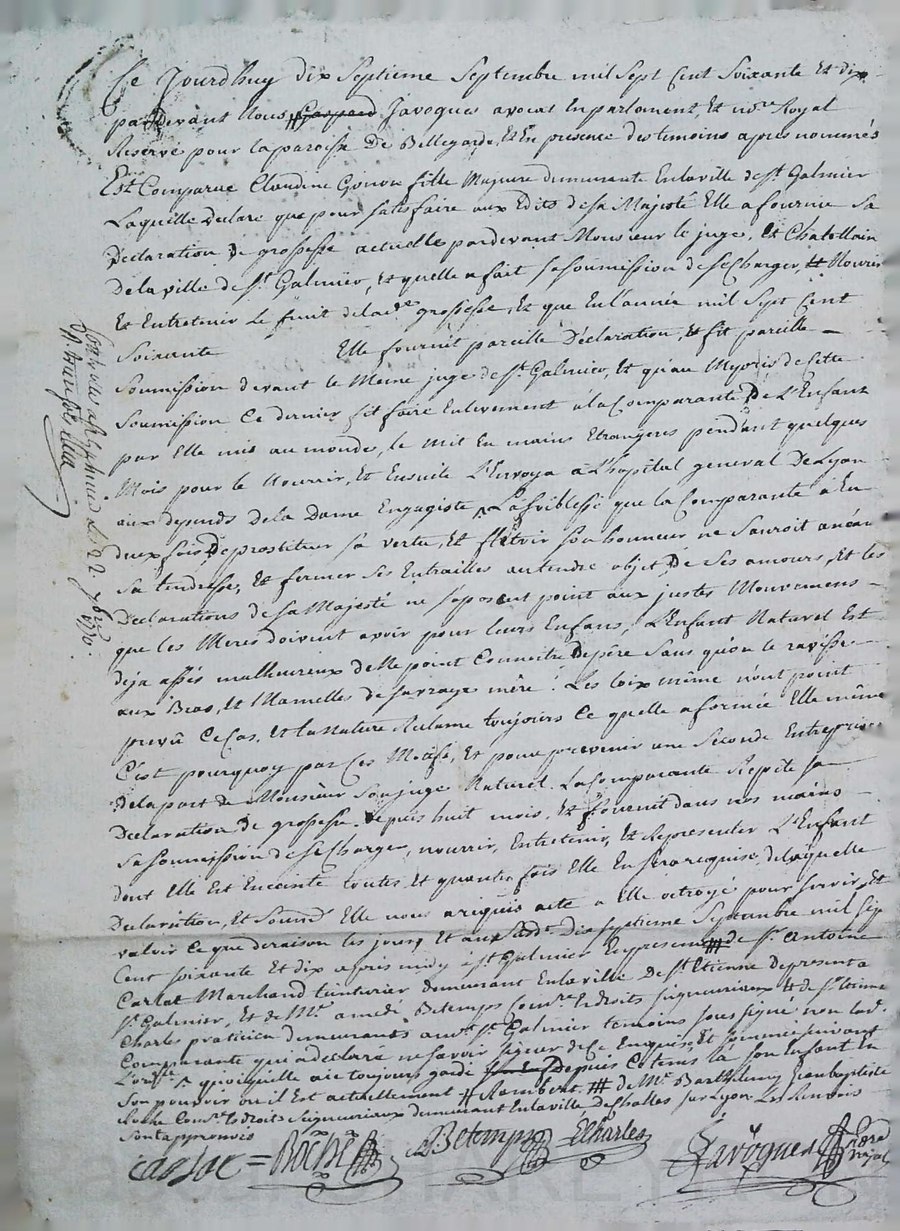 Ce Jourdhuy dix Septieme Septembre mil Sept Cent Soixante Et dix
pardevant Nous # Gaspard Javogues avocat En parlement, Et no.re Royal
Reservé pour la paroisse De Bellegarde, Et En presence des temoins apres nommés
Est Comparue Claudine Gonon fille Majeure demeurante En la ville de st. Galmier
Laquelle declare que pour satisfaire aux Edits de sa Majesté Elle a fournie Sa
Declaration De grossesse actuelle pardevant Monsieur le juge, Et Chatellain
De la ville de st. Galmier, Et quelle a fait sa soumission de se Charger, Nourir
Et Entretenir Le fruit de lad.e grossesse, Et que En l'année mil Sept Cent
Soixante Elle fournit pareille Declaration, Et fit pareille
Soumission devant le Meme juge de st. Galmier, Et qu'au Mepris de Cette
Soumission Ce dernier fit faire Enlevement à la Comparante De L'Enfant
par Elle mis au monde, le mit En mains Etrangeres pendant quelques
Mois pour le Nourrir, Et Ensuite L'Envoya a L'hopital general De Lyon
aux depends De la Dame Engagiste La foiblesse que la Comparante à Eu
deux fois De prostituer sa vertu, Et fletrir son honneur ne Sauroit aneantir
Sa tendresse, Et fermer Ses Entrailles au tendre objet De Ses amours, Et les
Declarations de Sa Majesté ne s'oposent point aux justes Mouvemens
que les Meres doivent avoir pour leurs Enfans, L'Enfant Naturel Est
deja assés malheureux de Ne point Connoitre De pére Sans qu'on le ravisse
aux Bras, Et Mamelles de sa vraye mère! Les loix même n'ont point
prevû Ce Cas, Et la Nature Reclame toujours Ce quelle a formée Elle même
C'est pourquoy par Ces Motifs, Et pour prevenir une Seconde Entreprise
de la part de Monsieur Son juge Naturel. La Comparante Repète sa
Declaration De grossesse Depuis huit mois, Et fournit dans nos mains
Sa soumission de se Charger, nourrir, Entretenir, Et Representer L'Enfant
dont Elle Est Enceinte toutes Et quantes fois Elle En sera requise, de laquelle
Declaration, Et Soumn. Elle nous a requis acte a Elle octroyé pour servir, Et
valoir Ce que de raison les jour, Et an susd.t Dix septieme Septembre mil Sept
Cent soixante Et dix apres midy à st. Galmier En presence de sr. antoine
Carlat Marchand teinturier demeurant En la ville De st. Etienne De present a
st. Galmier, Et de Me. amedé Betemps Et droits Seigneuriaux Et de sr. Etienne
Charles praticien demeurants aud. st. Galmier temoins sous signé non lad.
Comparante qui a declaré ne savoir signer de Ce Enquise, Et
quoi quelle aie toujours gardé Depuis Ce tems là son Enfant En
Son pouvoir ou il Est actuellement # Rambert. ### de Me. Barthelemy Jean baptiste
Roche Et droits Seigneuriaux demeurant En la ville De Les Renvois
Sont approuvés
Carlat = Roche Betemps ECharles Javogues no.re Royal